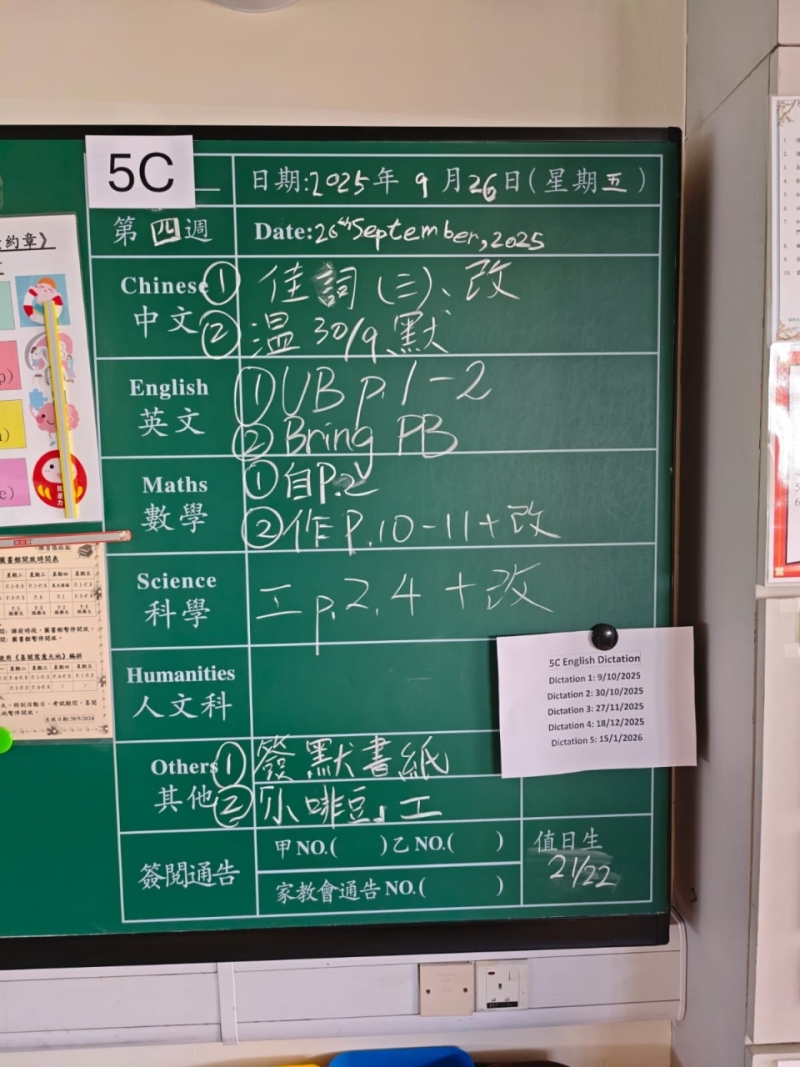 5C
日期:2025年 9月26日(星期五)
第四週
Date:26th September, 2025
Chinese
中文
① 佳詞(三)、改
② 溫30/9默
English
英文
① UB p.1-2
② Bring PB
Maths
數學
① 自P.2
② 作P.10-11+改
Science
科學
工p.2,4 +改
Humanities
人文科
Others
其他
① 簽默書紙
② 「小啡豆」工
簽閱通告
甲NO.( )乙NO.( )
家教會通告NO.( )
值日生
21/22
5C English Dictation
Dictation 1: 9/10/2025
Dictation 2: 30/10/2025
Dictation 3: 27/11/2025
Dictation 4: 18/12/2025
Dictation 5: 15/1/2026
約章》
圖書館開放時間表